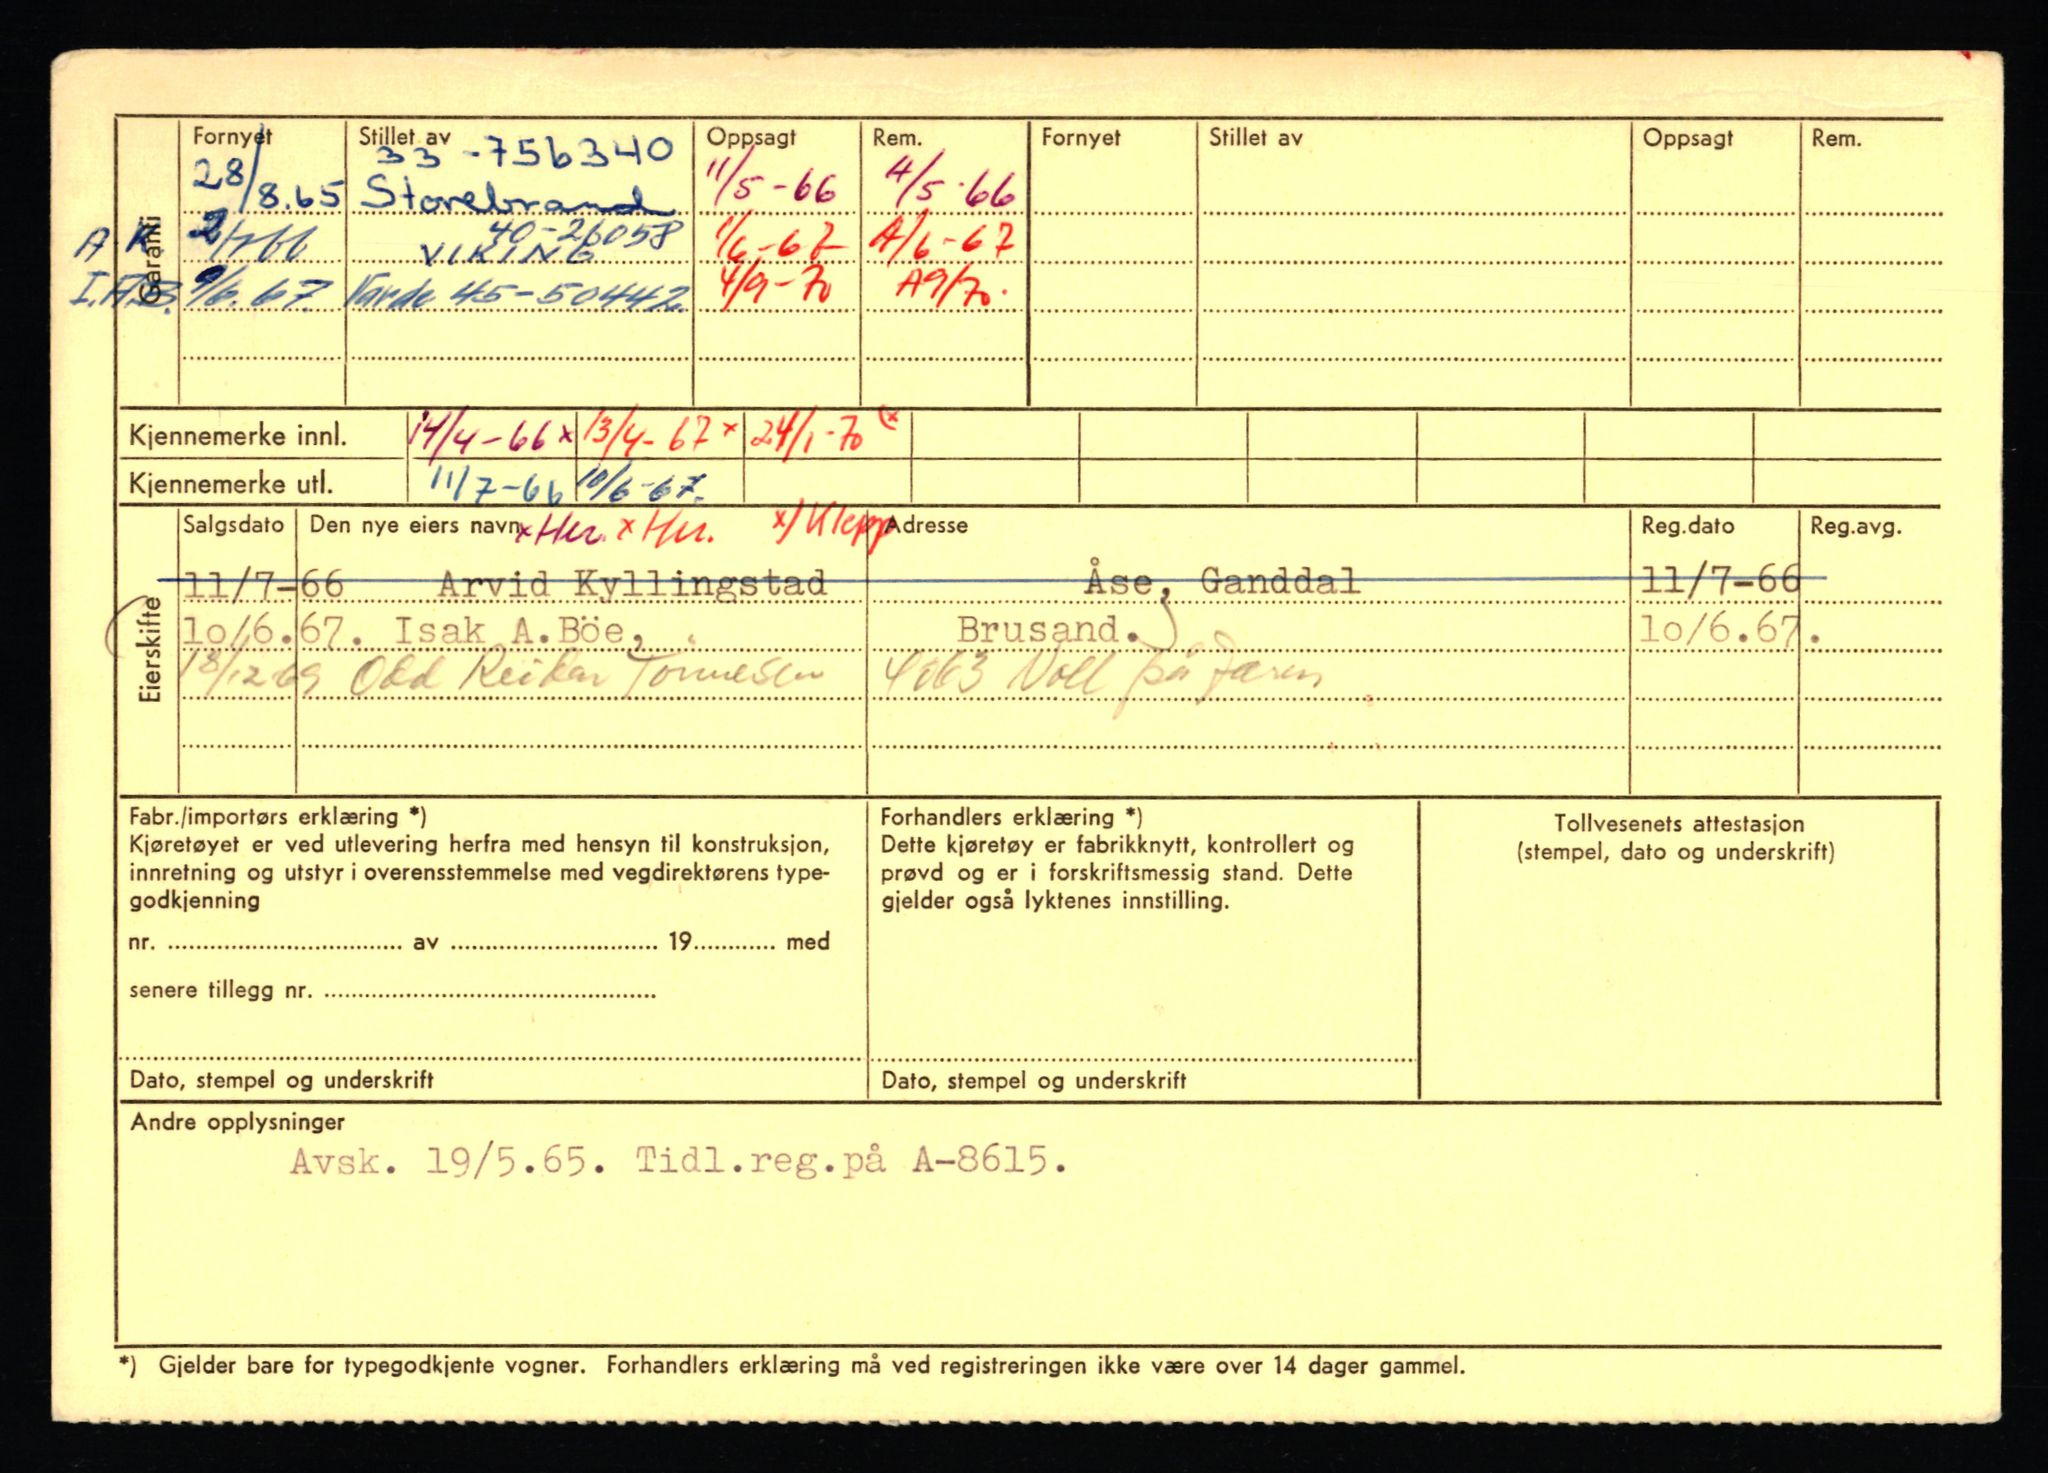 Garanti
Fornyet Stillet av Oppsagt Rem. Fornyet Stillet av Oppsagt Rem.
33-756340
28/8.65 Storebrand 11/5-66 4/5-66
A.K. 2/766 40-26058 VIKING 1/6-67 A/6-67
I.A.B. 9/6.67. Varde 45-50442. 4/9-70 A9/70.
Kjennemerke innl. 14/4-66 x 13/4-67 x 24/1-70 (x
Kjennemerke utl. 11/7-66 10/6-67.
Eierskifte
Salgsdato Den nye eiers navn x Her. x Her. x) Klepp Adresse Reg.dato Reg.avg.
11/7-66 Arvid Kyllingstad Åse, Ganddal 11/7-66
10/6.67. Isak A.Böe, Brusand. 10/6.67.
18/12 69 Odd Reidar Tönnesen 4063 Voll på Jæren
Fabr./importørs erklæring *)
Kjøretøyet er ved utlevering herfra med hensyn til konstruksjon,
innretning og utstyr i overensstemmelse med vegdirektørens type-
godkjenning
nr. .......... av .......... 19.......... med
senere tillegg nr. ..........
Dato, stempel og underskrift
Forhandlers erklæring *)
Dette kjøretøy er fabrikknytt, kontrollert og
prøvd og er i forskriftsmessig stand. Dette
gjelder også lyktenes innstilling.
Dato, stempel og underskrift
Tollvesenets attestasjon
(stempel, dato og underskrift)
Andre opplysninger
Avsk. 19/5.65. Tidl.reg.på A-8615.
*) Gjelder bare for typegodkjente vogner. Forhandlers erklæring må ved registreringen ikke være over 14 dager gammel.